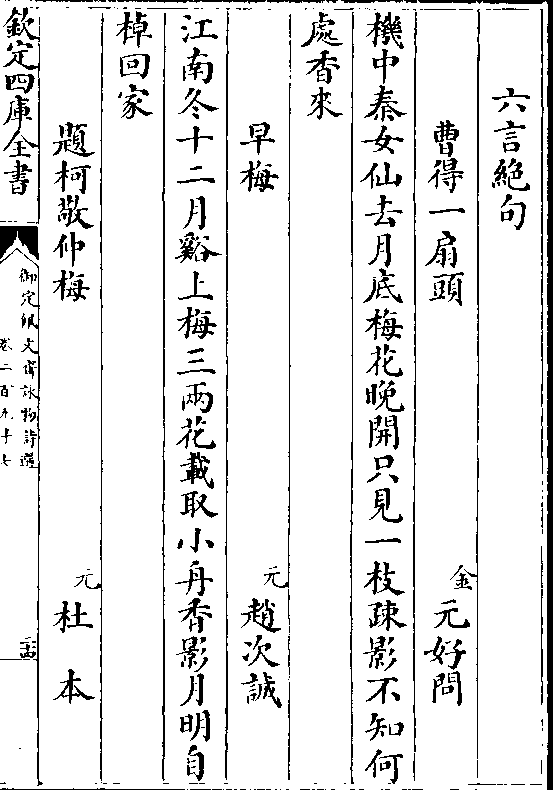 六言絶句
曹得一扇頭
金 元好問
機中秦女仙去月底梅花晚開只見一枝疎影不知何
處香來
早梅
元 趙次誠
江南冬十二月谿上梅三兩花載取小舟香影月明自
棹回家
題柯敬仲梅
元 杜本
欽定四庫全書
御定佩文齋詠物詩選
卷二百九十七